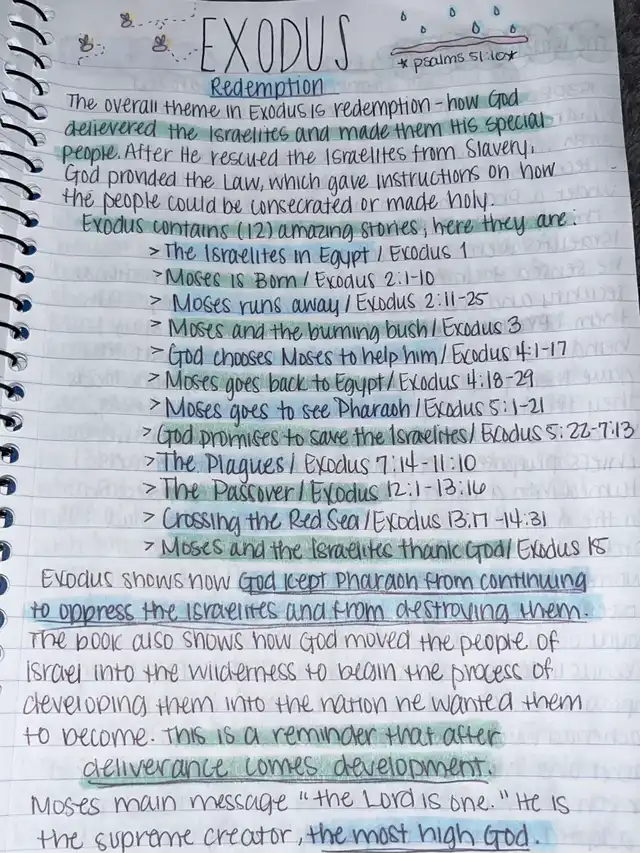 EXODUS
*psalms 51:10*
Redemption
The overall theme in Exodus is redemption - how God
delievered the Israelites and made them His special
people. After He rescued the Israelites from Slavery,
God provided the Law, which gave instructions on how
the people could be consecrated or made holy.
Exodus contains (12) amazing stories, here they are:
> The Israelites in Egypt / Exodus 1
> Moses is Born / Exodus 2:1-10
> Moses runs away / Exodus 2:11-25
> Moses and the burning bush / Exodus 3
> God chooses Moses to help him / Exodus 4:1-17
> Moses goes back to Egypt / Exodus 4:18-29
> Moses goes to see Pharaoh / Exodus 5:1-21
> God promises to save the Israelites / Exodus 5:22-7:13
> The Plagues / Exodus 7:14-11:10
> The Passover / Exodus 12:1-13:16
> Crossing the Red Sea / Exodus 13:17-14:31
> Moses and the Israelites thank God / Exodus 15
Exodus shows how God kept Pharaoh from continuing
to oppress the Israelites and from destroying them.
The book also shows how God moved the people of
Israel into the wilderness to begin the process of
developing them into the nation he wanted them
to become. This is a reminder that after
deliverance comes development.
Moses main message "the Lord is one." He is
the supreme creator, the most high God.